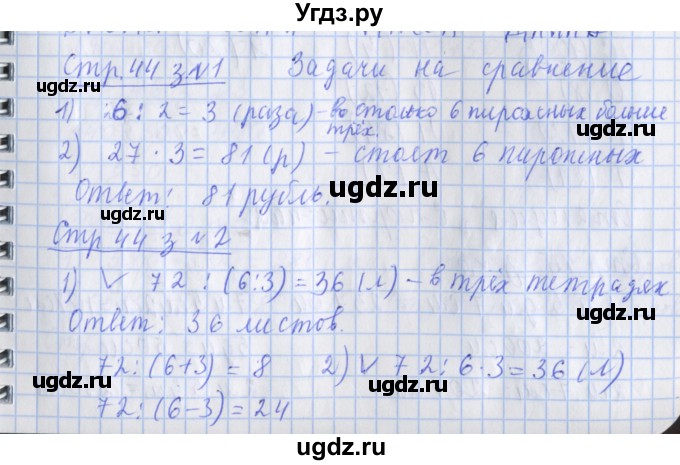 Угдз.ру
Стр. 44 з №1 Задачи на сравнение
1) 6 : 2 = 3 (раза) – во столько 6 пирожных больше
трёх.
2) 27 · 3 = 81 (р) – стоят 6 пирожных
Ответ: 81 рубль.
Стр 44 з №2
1) V 72 : (6:3) = 36 (л) – в трёх тетрадях
Ответ: 36 листов.
72 : (6+3) = 8 2) V 72 : 6 · 3 = 36 (л)
72 : (6-3) = 24
ugdz.ru
ugdz.ru
ugdz.ru
ugdz.ru
ugdz.ru
ugdz.ru
ugdz.ru
ugdz.ru
ugdz.ru
ugdz.ru
ugdz.ru
ugdz.ru